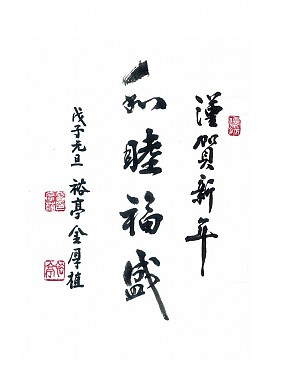 謹賀新年
和睦福盛
戊子元旦
裕亭金厚植